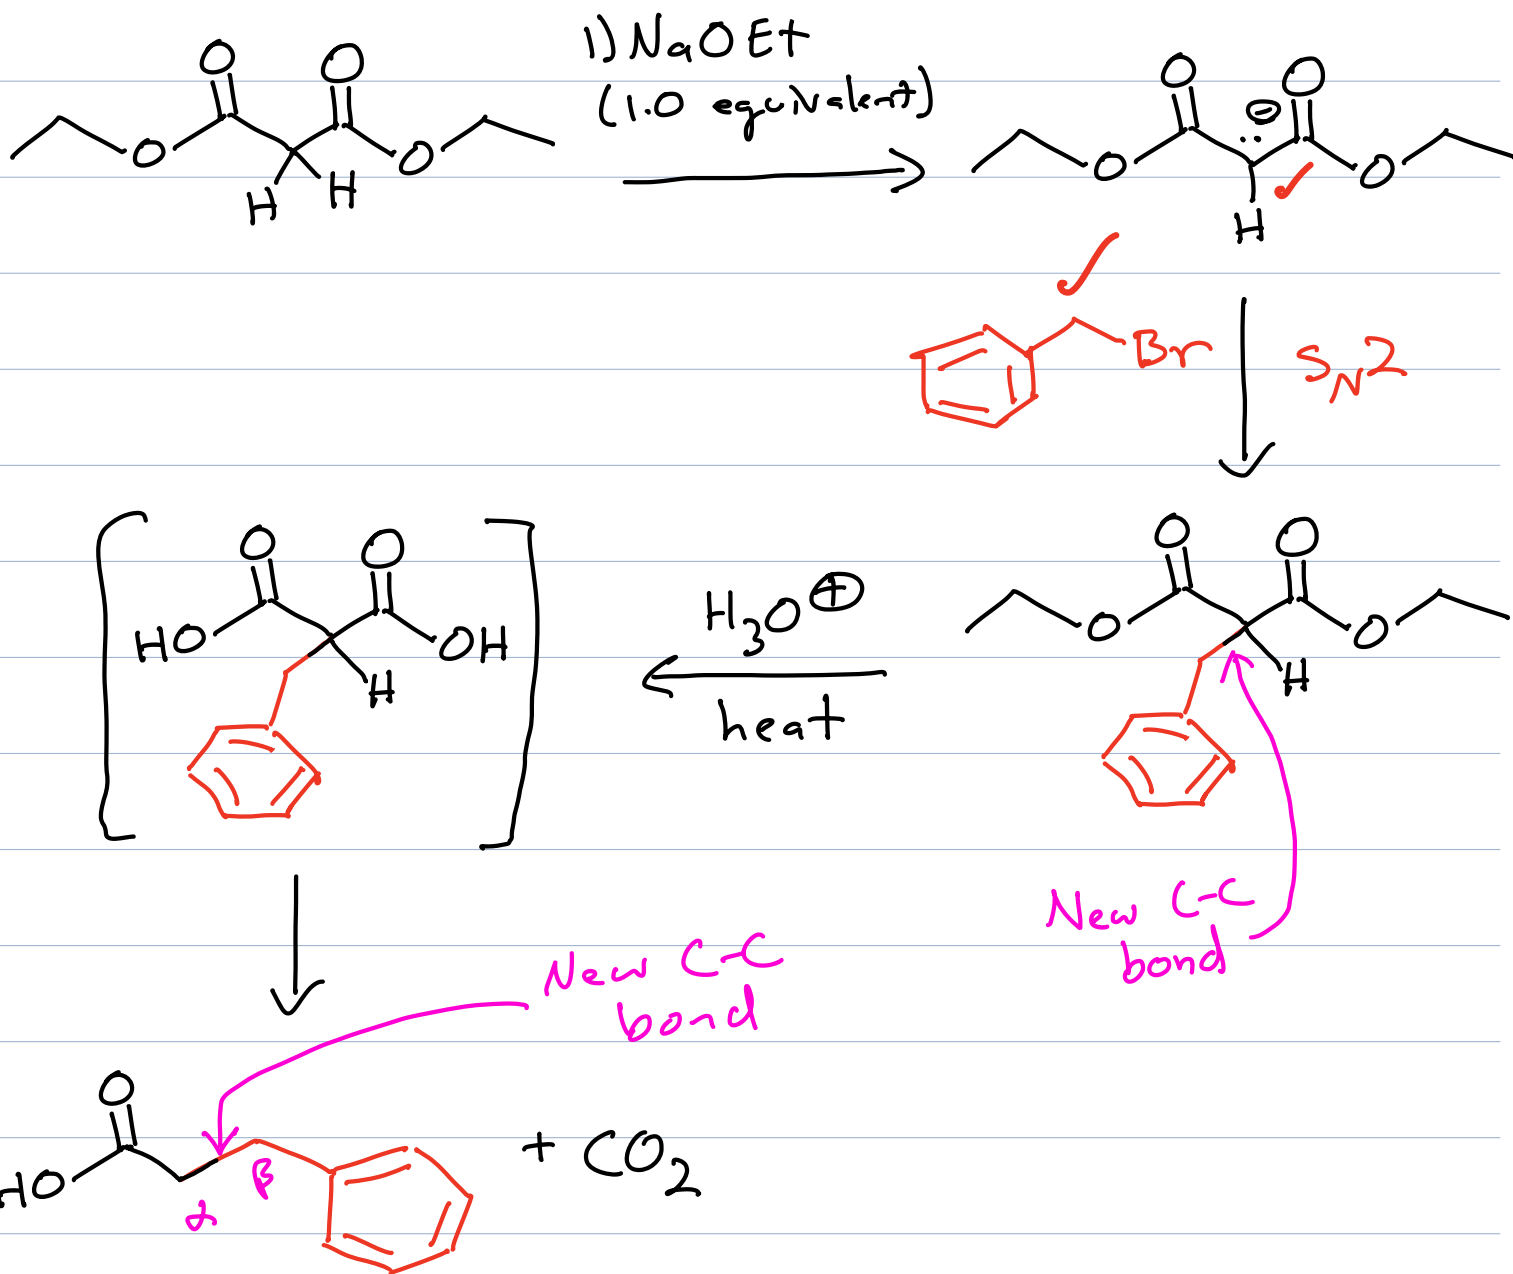 1) NaOEt
(1.0 equivalent)
O O
O O
H H
O O
⊖
O O
H
Br
SN2
O O
O O
H
New C-C
bond
H3O⊕
heat
O O
HO OH
H
New C-C
bond
O
HO
α β
+ CO2